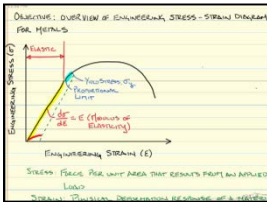 OBJECTIVE: OVERVIEW OF ENGINEERING STRESS-STRAIN DIAGRAM
FOR METALS
ELASTIC
ENGINEERING STRESS (σ)
YIELD STRESS, σy
PROPORTIONAL
LIMIT
dσ/dε = E (MODULUS OF
ELASTICITY)
ENGINEERING STRAIN (ε)
STRESS: FORCE PER UNIT AREA THAT RESULTS FROM AN APPLIED
LOAD
STRAIN: PHYSICAL DEFORMATION RESPONSE OF A MATERIAL